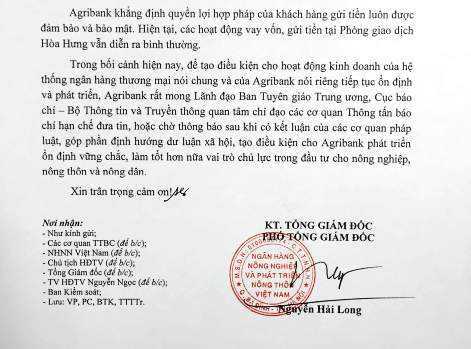 Agribank khẳng định quyền lợi hợp pháp của khách hàng gửi tiền luôn được
đảm bảo và bảo mật. Hiện tại, các hoạt động vay vốn, gửi tiền tại Phòng giao dịch
Hòa Hưng vẫn diễn ra bình thường.
Trong bối cảnh hiện nay, để tạo điều kiện cho hoạt động kinh doanh của hệ
thống ngân hàng thương mại nói chung và của Agribank nói riêng tiếp tục ổn định
và phát triển, Agribank rất mong Lãnh đạo Ban Tuyên giáo Trung ương, Cục báo
chí – Bộ Thông tin và Truyền thông quan tâm chỉ đạo các cơ quan Thông tấn báo
chí hạn chế đưa tin, hoặc chờ thông báo sau khi có kết luận của các cơ quan pháp
luật, góp phần định hướng dư luận xã hội, tạo điều kiện cho Agribank phát triển
ổn định vững chắc, làm tốt hơn nữa vai trò chủ lực trong đầu tư cho nông nghiệp,
nông thôn và nông dân.
Xin trân trọng cảm ơn!
Nơi nhận:
- Như kính gửi;
- Các cơ quan TTBC (để b/c);
- NHNN Việt Nam (để b/c);
- Chủ tịch HĐTV (để b/c);
- Tổng Giám đốc (để b/c);
- TV HĐTV Nguyễn Ngọc (để b/c);
- Ban Kiểm soát;
- Lưu: VP, PC, BTK, TTTTr.
KT. TỔNG GIÁM ĐỐC
PHÓ TỔNG GIÁM ĐỐC
NGÂN HÀNG
NÔNG NGHIỆP
VÀ PHÁT TRIỂN
NÔNG THÔN
VIỆT NAM
Nguyễn Hải Long